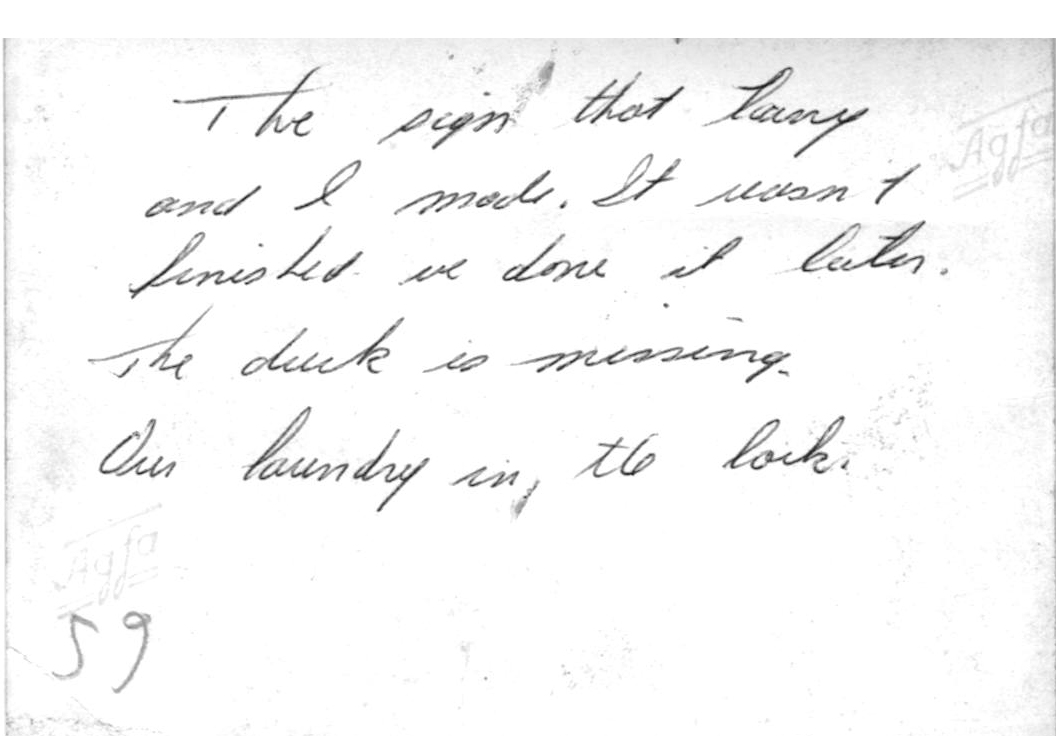 The sign that Larry
and I made. It wasn't
finished we done it later.
The duck is missing.
Our laundry in
Agfa
Agfa
59